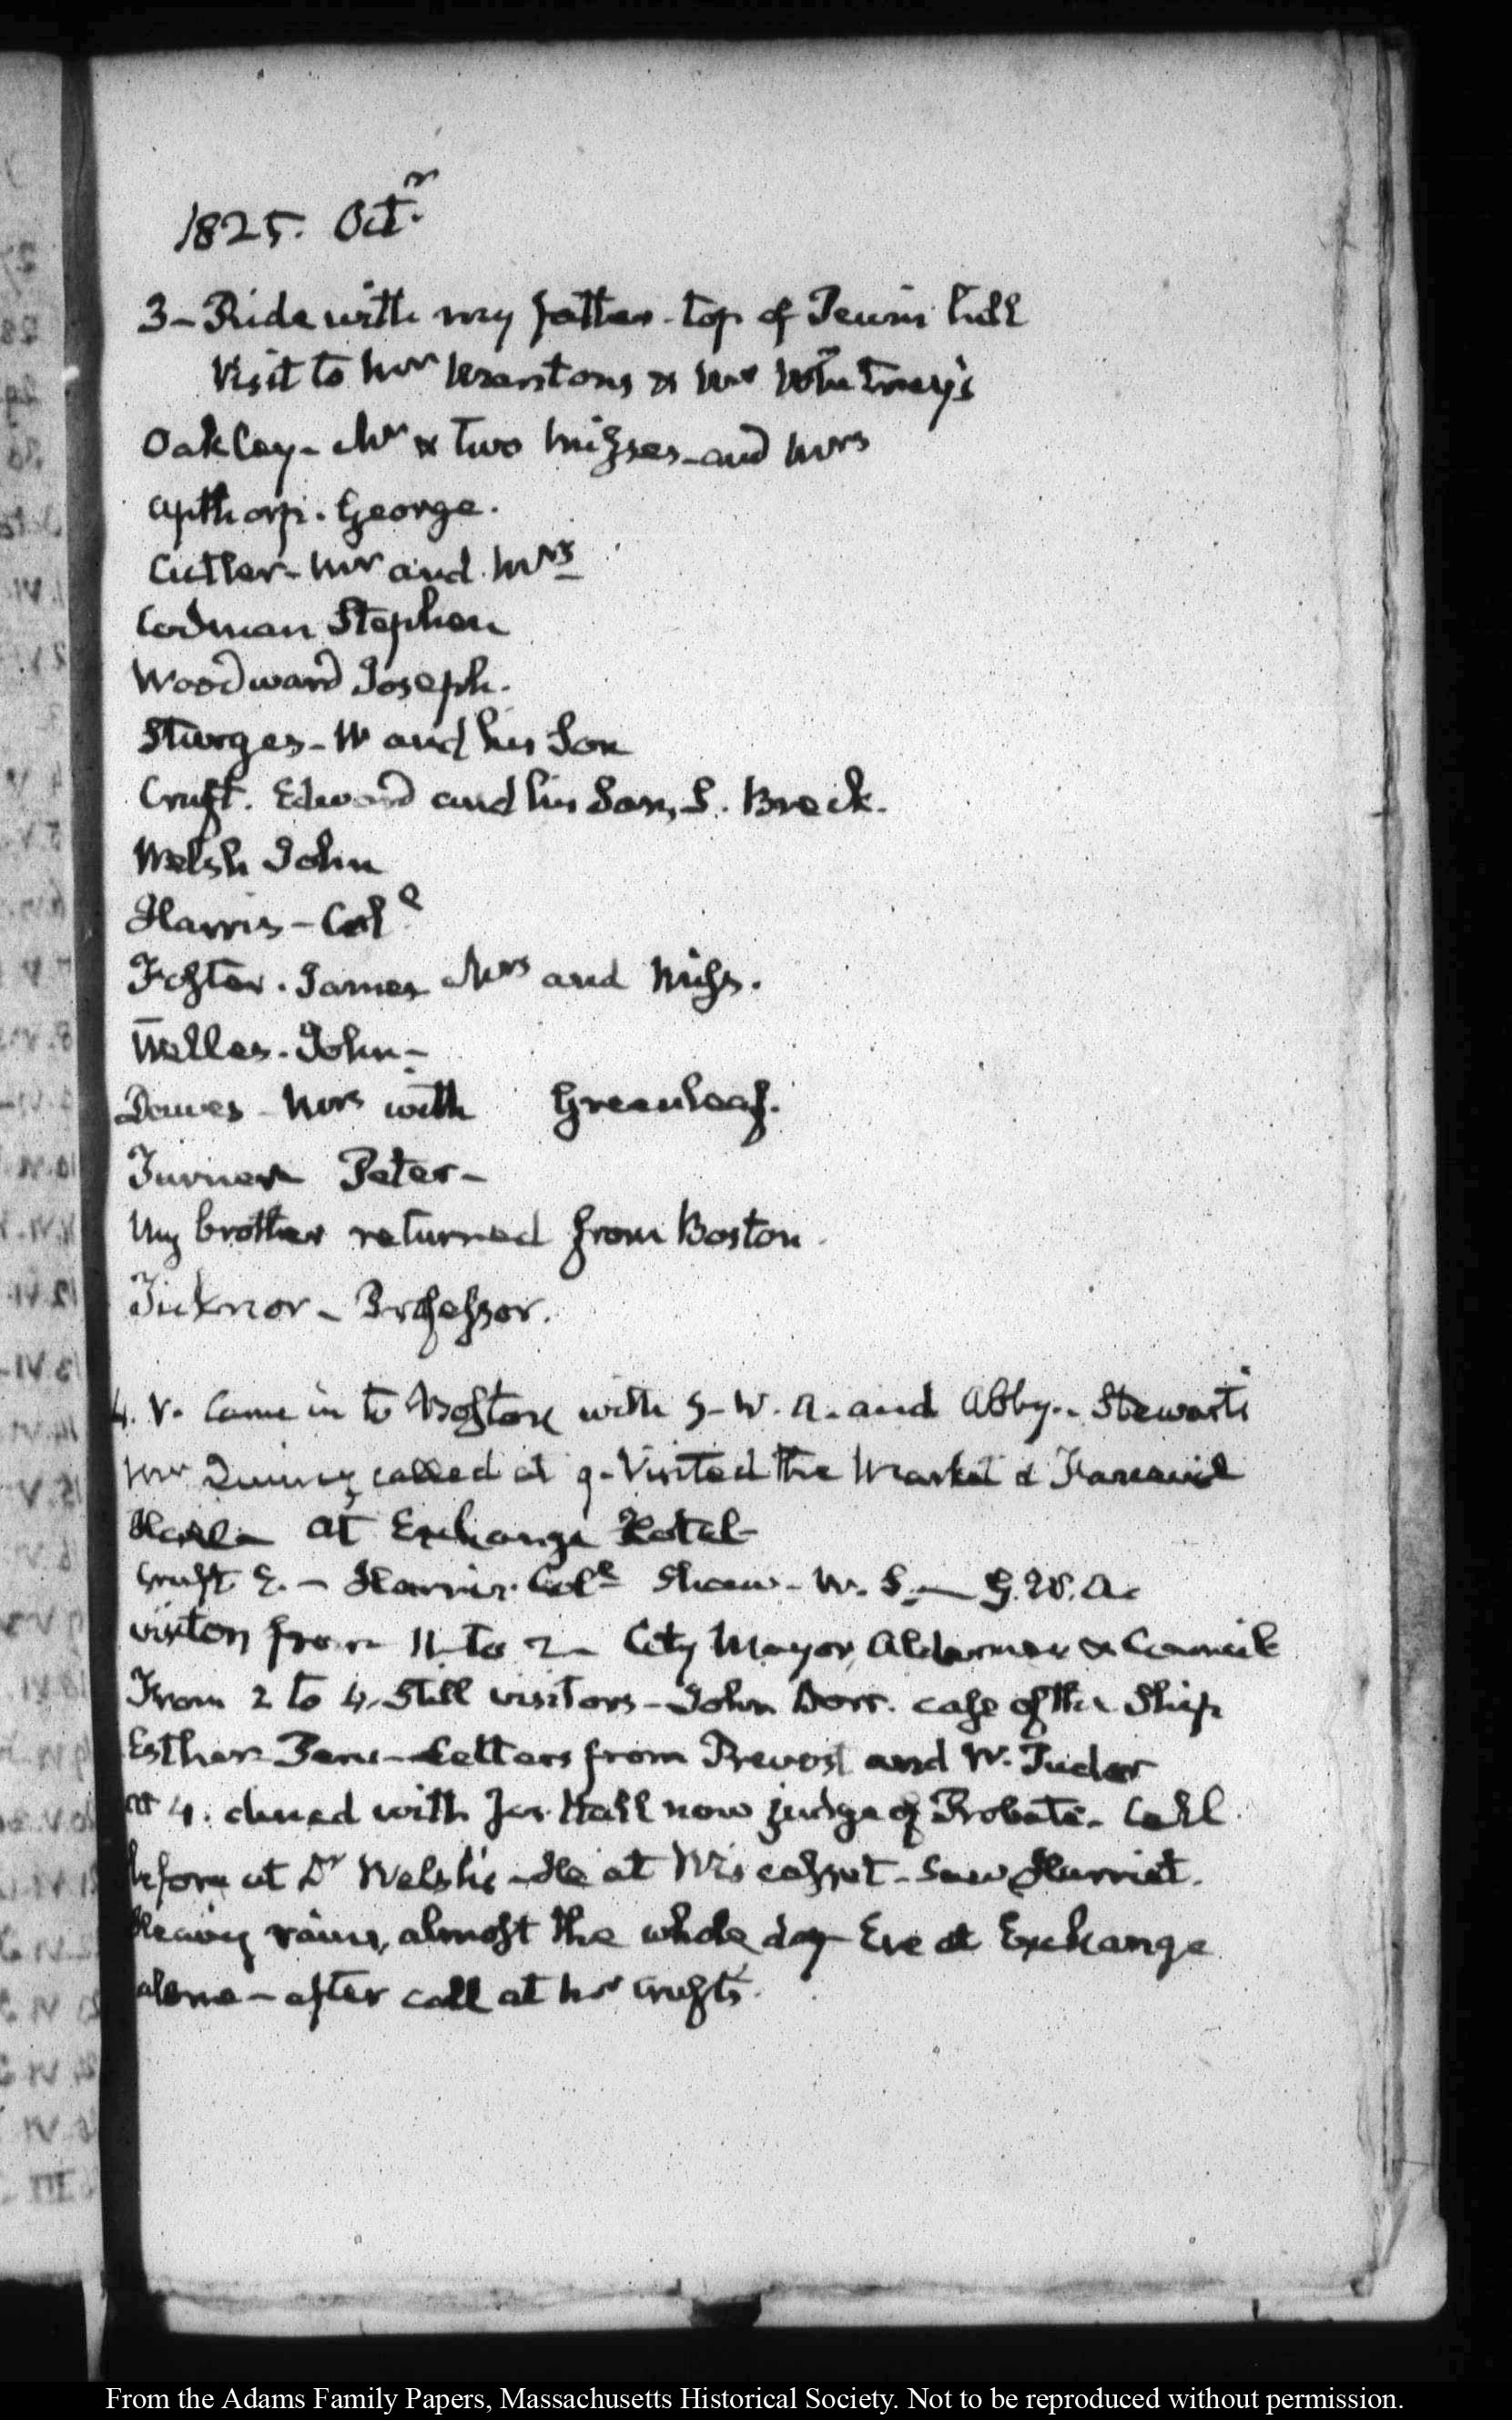 1825. Octr.
3 – Ride with my father – top of Penn's hill
Visit to Mrs & Mr Whitney's
Oakley – Mr & two Misses – and Mrs
Apthorp. George.
Cutler – Mr and Mrs
Codman Stephen
Woodward Joseph.
Sturges – W and his Son
Cruft. Edward and his Son, S. Breck.
Welsh John
Harris – Coll
Foster. James Mrs and Miss.
Welles. John –
Dawes – Mrs with Greenleaf.
Turner Peter –
My brother returned from Boston.
Ticknor – Professor.
4. V. Came in to Boston with G. W. A. and Abby – Stewart's
Mr Quincy called at 9 – Visited the Market & Faneuil
Hall – at Exchange Hotel –
Cruft E. – Harris Coll Shaw – W. S. – G. W. A.
visitors from 11 to 2 – City Mayor, Aldermen & Council
From 2 to 4. Still visitors – John Dorr. case of the Ship
Esther – Letters from Prevost and W. Tudor
at 4. dined with Jos. Hall now judge of Probate – Call
before at Dr Welsh's – He at Wiscasset – Saw Harriet.
Heavy rain, almost the whole day – Eve at Exchange
alone – after call at Mr Cruft's.
From the Adams Family Papers, Massachusetts Historical Society. Not to be reproduced without permission.